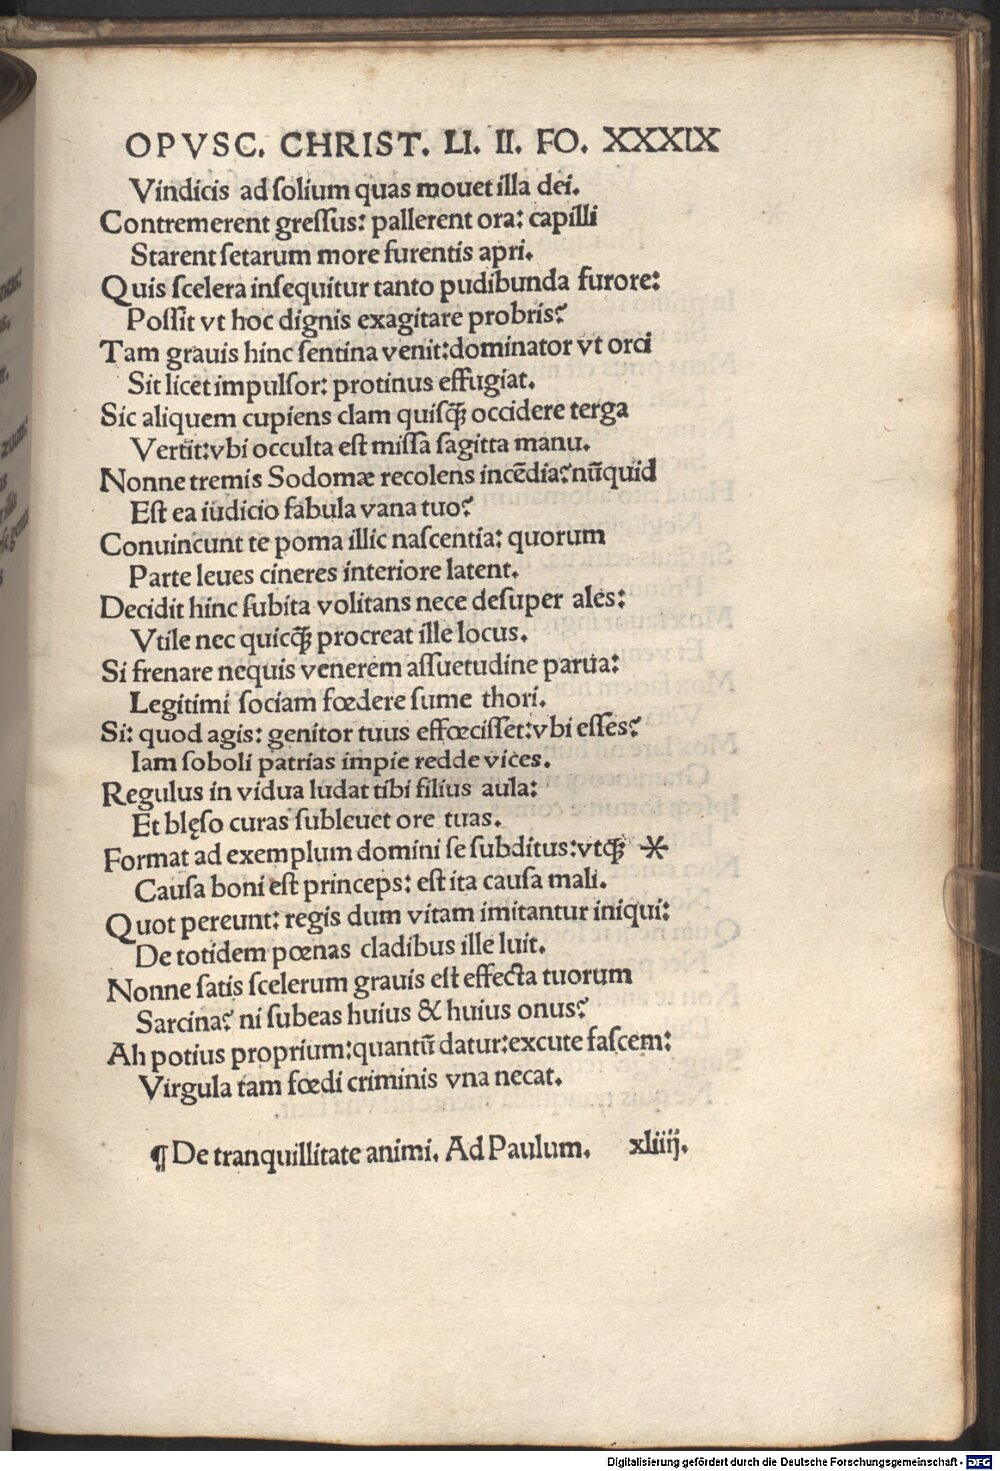 OPVSC. CHRIST. LI. II. FO. XXXIX
Vindicis ad ſolium quas mouet illa dei.
Contremerent greſſus: pallerent ora: capilli
Starent ſetarum more furentis apri.
Quis ſcelera inſequitur tanto pudibunda furore:
Poſſit vt hoc dignis exagitare probris?
Tam grauis hinc ſentina venit:dominator vt orci
Sit licet impulſor: protinus effugiat.
Sic aliquem cupiens clam quiſq̃ occidere terga
Vertit:vbi occulta eſt miſſa ſagitta manu.
Nonne tremis Sodomæ recolens incẽdia?nũquid
Eſt ea iudicio fabula vana tuo?
Conuincunt te poma illic naſcentia: quorum
Parte leues cineres interiore latent.
Decidit hinc ſubita volitans nece deſuper ales:
Vtile nec quicq̃ procreat ille locus.
Si frenare nequis venerem aſſuetudine parua:
Legitimi ſociam fœdere ſume thori.
Si: quod agis: genitor tuus effœciſſet:vbi eſſes?
Iam ſoboli patrias impie redde vices.
Regulus in vidua ludat tibi filius aula:
Et blęſo curas ſubleuet ore tuas.
Format ad exemplum domini ſe ſubditus:vtq̃ *
Cauſa boni eſt princeps: eſt ita cauſa mali.
Quot pereunt: regis dum vitam imitantur iniqui:
De totidem pœnas cladibus ille luit.
Nonne ſatis ſcelerum grauis eſt effecta tuorum
Sarcina? ni ſubeas huius & huius onus?
Ah potius proprium:quantũ datur:excute faſcem:
Virgula tam fœdi criminis vna necat.
¶ De tranquillitate animi. Ad Paulum. xliiij.
Digitalisierung gefördert durch die Deutsche Forschungsgemeinschaft - DFG